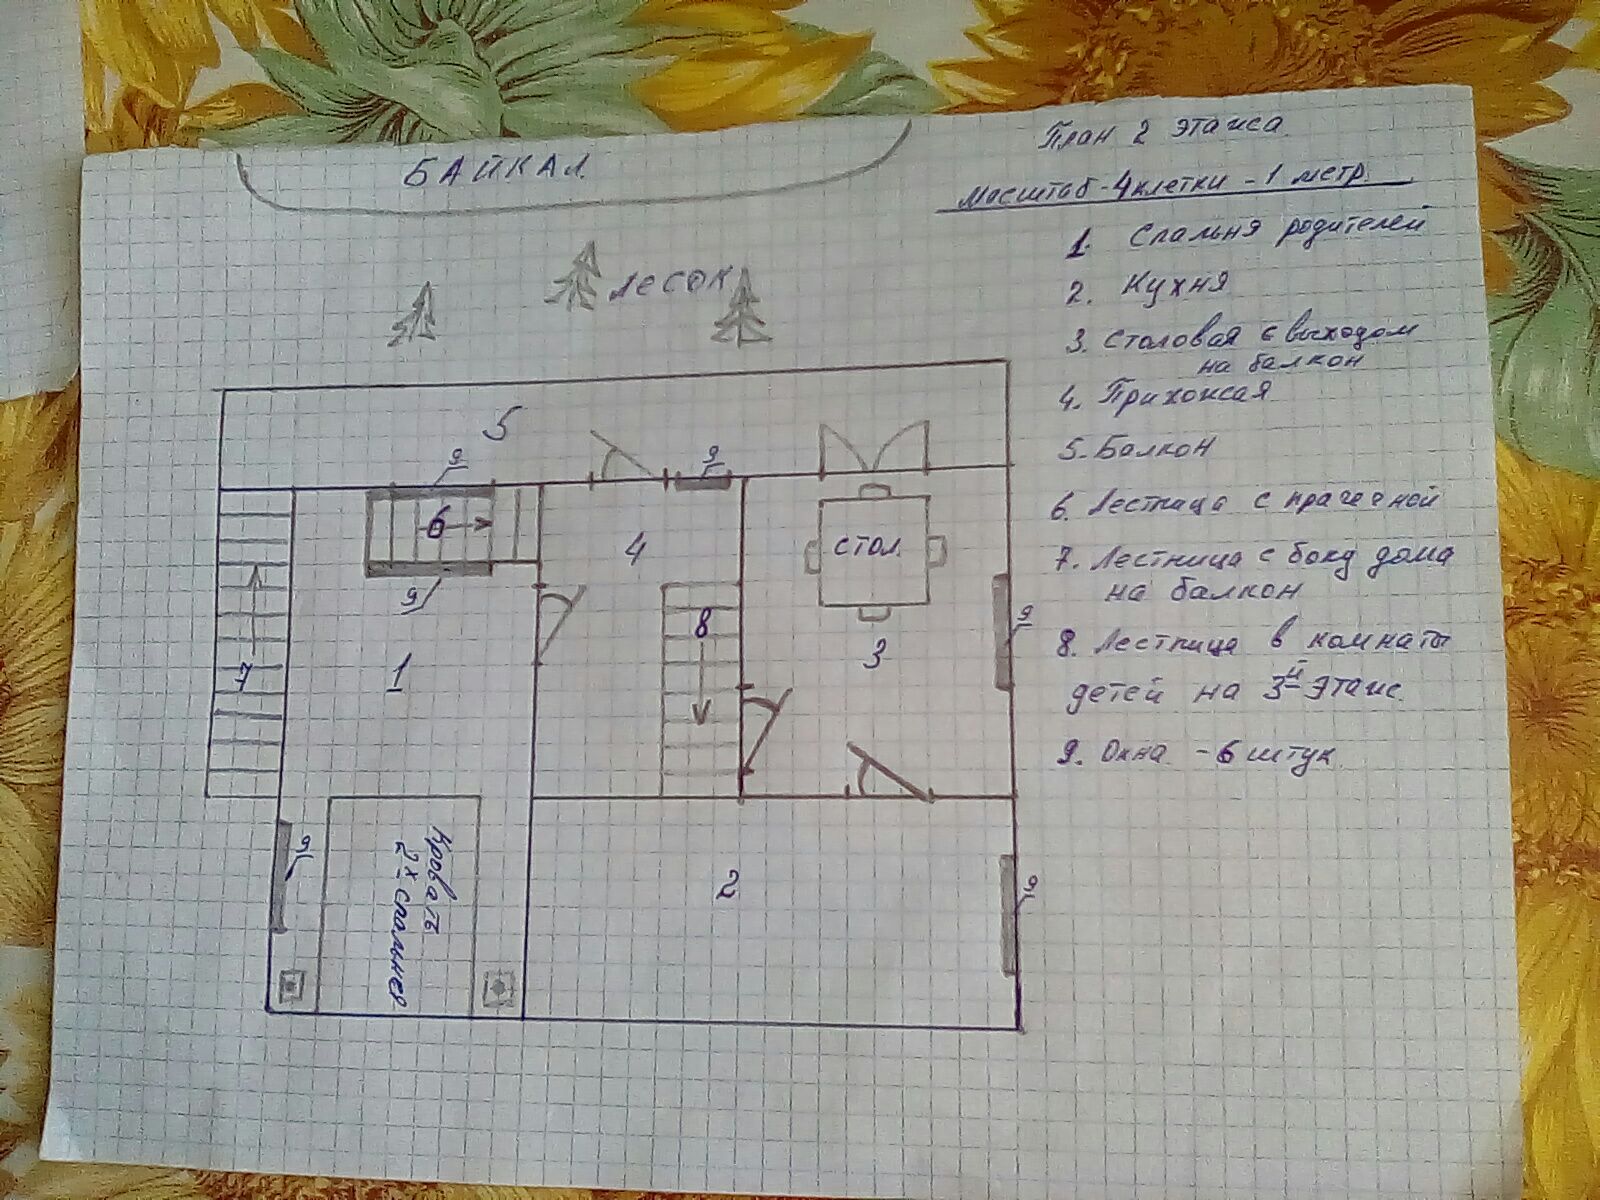 БАЙКАЛ
План 2 этажа
Масштаб - 4 клетки - 1 метр.
ЛЕСОК
1. Спальня родителей
2. Кухня
3. Столовая с выходом
на балкон
4. Прихожая
5. Балкон
6. Лестница с прачечной
7. Лестница с боку дома
на балкон
8. Лестница в комнаты
детей на 3й этаж.
9. Окна - 6 штук.
5
9
9
6
4
СТОЛ.
9
8
9
7
1
3
9
Кровать
2х спальная
2
9